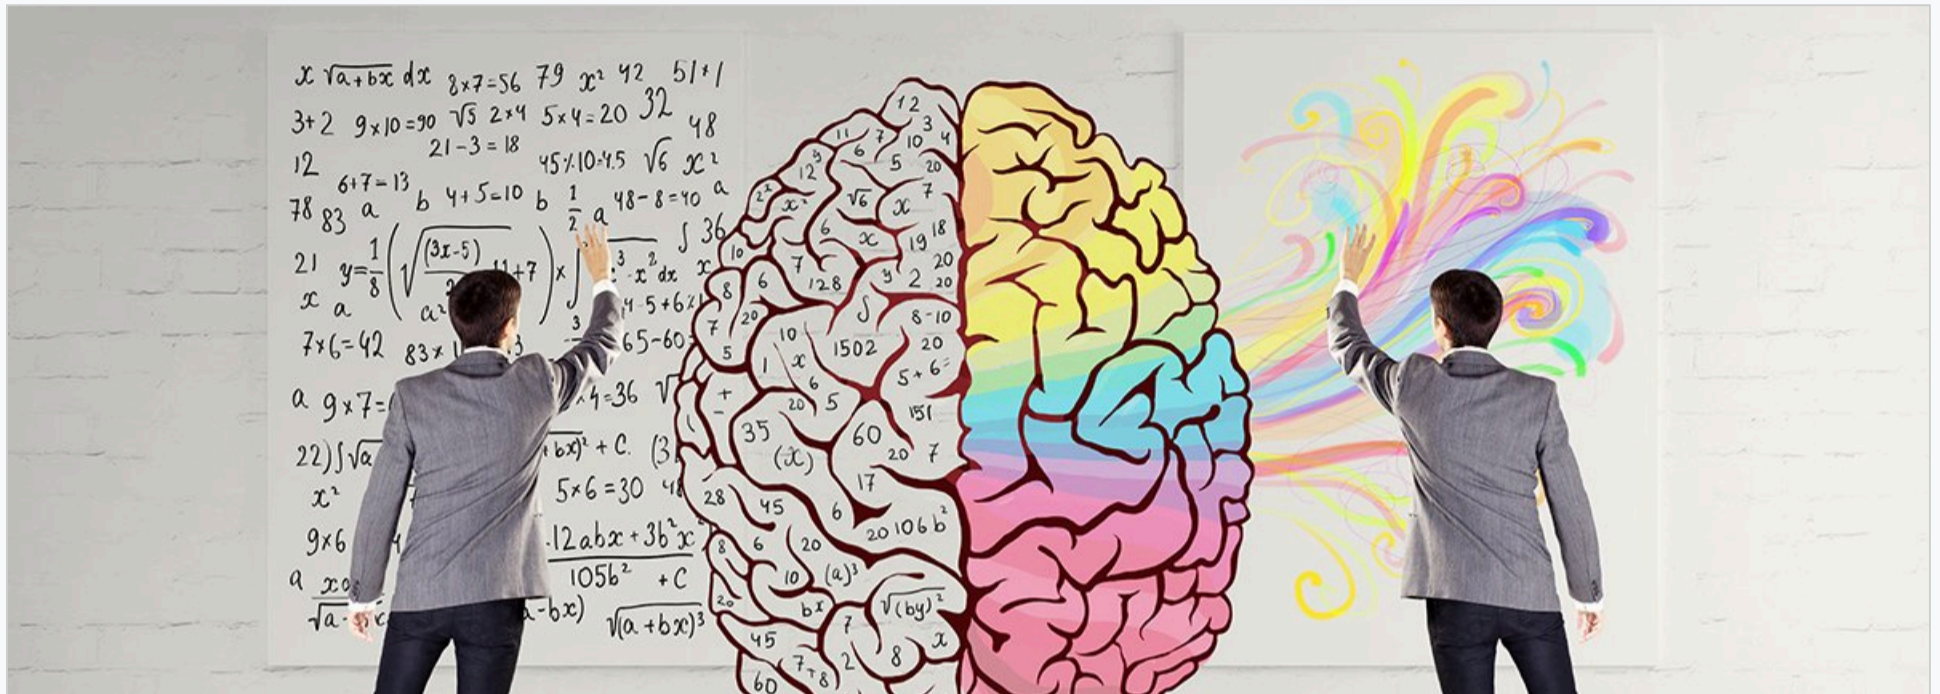 x √a+bx dx 8×7=56 79 x² 42 51+1
3+2 9×10=90 √5 2×4 5×4=20 32
48
21-3=18
12 45%10=4.5 √6 x²
6+7=13 b 4+5=10 b 1/2 48-8=40 a
78 83 a a
∫ 36
21 y=1/8(√(3x-5) +7)× ∫ ³-x² dx x
x a a² 4-5+6
3
7×6=42 83× 65-60
a 9×7= 4=36 √
22)∫√a +bx)²+C. (3
x² 5×6=30 48
9×6 4 12abx+3b²x²
a 105b² +C
√a a-bx) √(a+bx)³
12
11 7 3
6 10 4
12 y 5 20
2² x² √6 x 7
6 x 19 18
10 7 20
8 6 128 y 2 20
7 20 ∫ 8-10
10 1502 20
5 1 x 5+6=
6
+ 20 5 151
-
35 60
(x) 20 7
17
28 45 6 20 106b²
8 6 20
10 (a)³
20 bx √(by)²
7
45 x
7+8 2 8
60